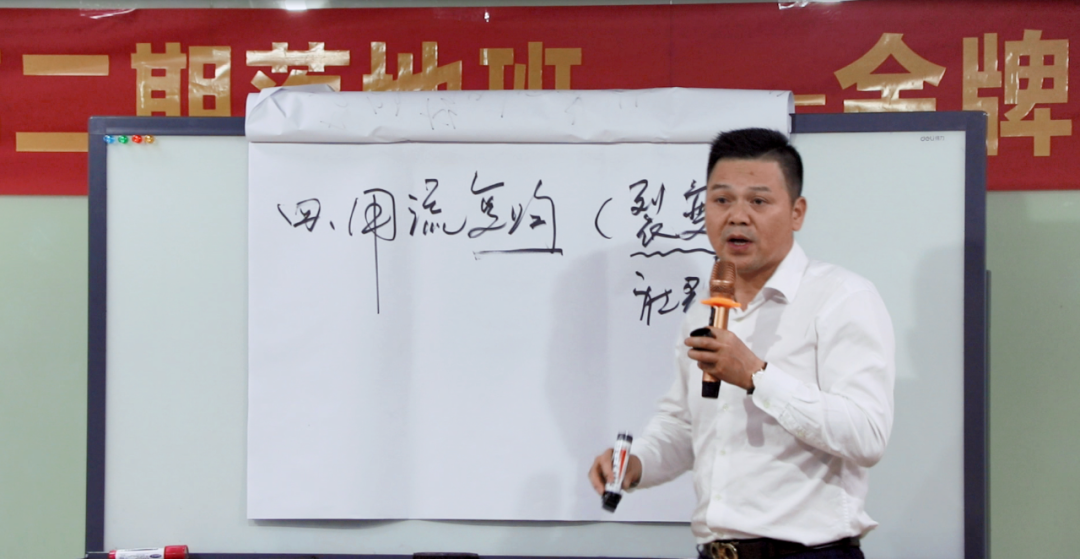 二期落地班 金牌
deli
四、用流复购（裂变
社